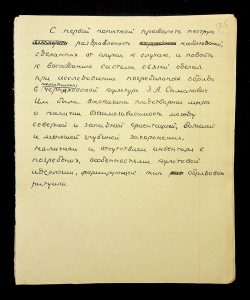 С первой попыткой преодолеть пеструю
раздробленность наблюдений
сделанных от случая к случаю, и подойти
к воссозданию системы связей явлений
при исследовании погребального обряда
в Черняховской культуре Э.А. Сымонович
Им была высказана плодотворная мысль
о наличии взаимозависимости между
северной и западной ориентацией, большей
и меньшей глубиной захоронения,
наличием и отсутствием инвентаря в
погребениях, особенностями культовой
идеологии, формирующей тип обрядовая
ритуала.